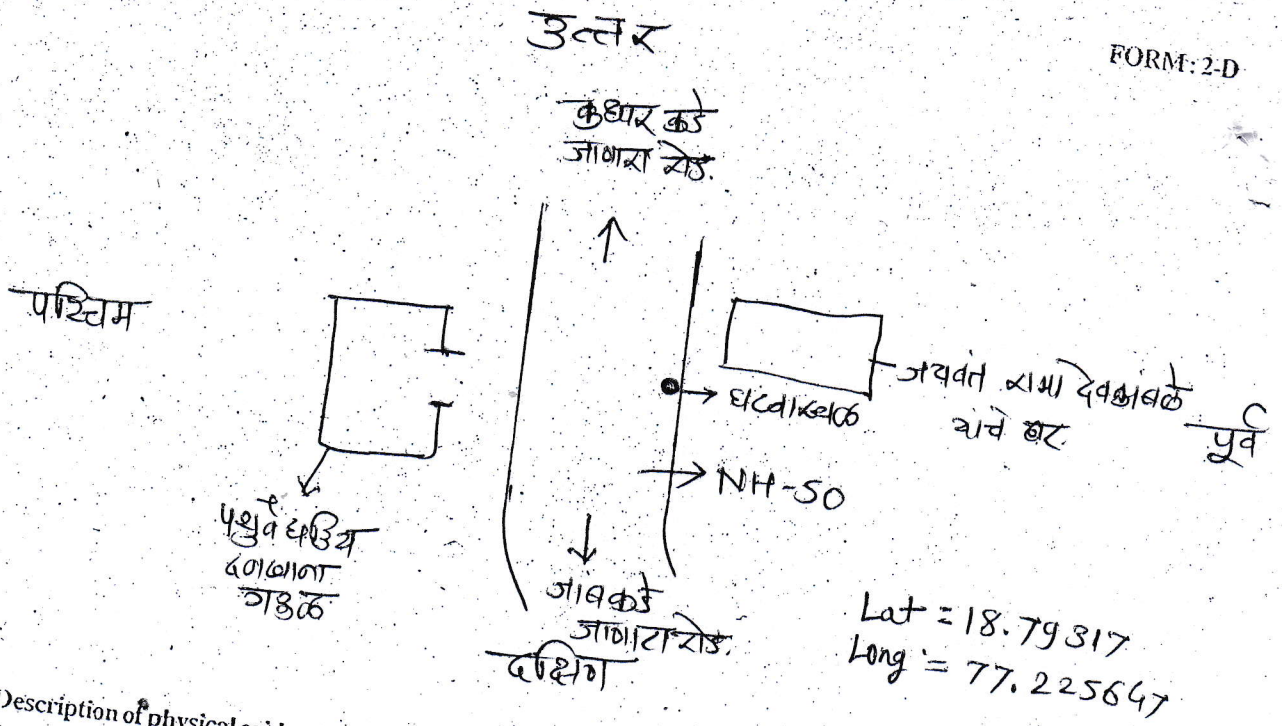 उत्तर
FORM: 2-D
कुंधर कडे
जाणारा रोड.
पश्चिम
जयवंत रामा देवकांबळे
यांचे घर
पूर्व
घटनास्थळ
NH-50
पशुवैद्यकिय
दवाखाना
जांबकडे
जाणारा रोड.
दक्षिण
Lat = 18.79317
Long = 77.225647
Description of physical